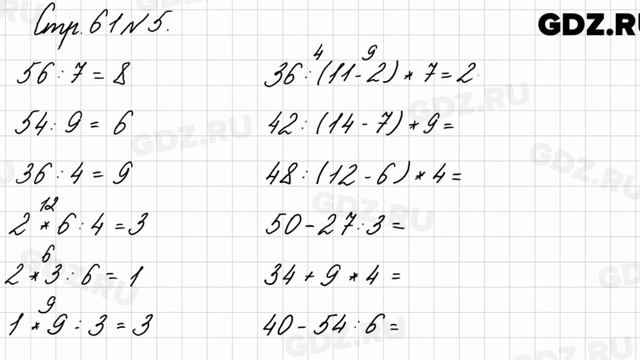 Стр. 61 № 5.
GDZ.RU
56 : 7 = 8
54 : 9 = 6
36 : 4 = 9
12
2 * 6 : 4 = 3
6
2 * 3 : 6 = 1
9
1 * 9 : 3 = 3
4 9
36 : (11 - 2) * 7 = 2
42 : (14 - 7) * 9 =
48 : (12 - 6) * 4 =
50 - 27 : 3 =
34 + 9 * 4 =
40 - 54 : 6 =
GDZ.RU
GDZ.RU
GDZ.RU
GDZ.RU
GDZ.RU
GDZ.RU